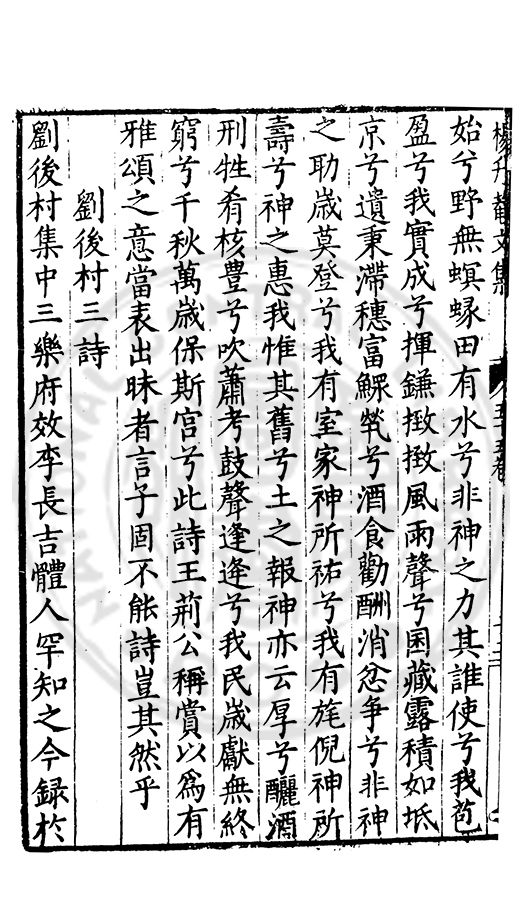 楊升菴文集 五十五卷
始兮野無螟蟓田有水兮非神之力其誰使兮我苞
盈兮我實成兮揮鎌撽撽風雨聲兮囷藏露積如坻
京兮遺秉滯穗富鰥㷀兮酒食勸酬消忿爭兮非神
之助嵗莫登兮我有室家神所祐兮我有旄倪神所
壽兮神之惠我惟其舊兮土之報神亦云厚兮釃酒
刑牲肴核豊兮吹蕭考鼓聲逢逢兮我民嵗獻無終
窮兮千秋萬嵗保斯宫兮此詩王荊公稱賞以為有
雅頌之意當表出昧者言子固不能詩豈其然乎
劉後村三詩
劉後村集中三樂府效李長吉體人罕知之今録於